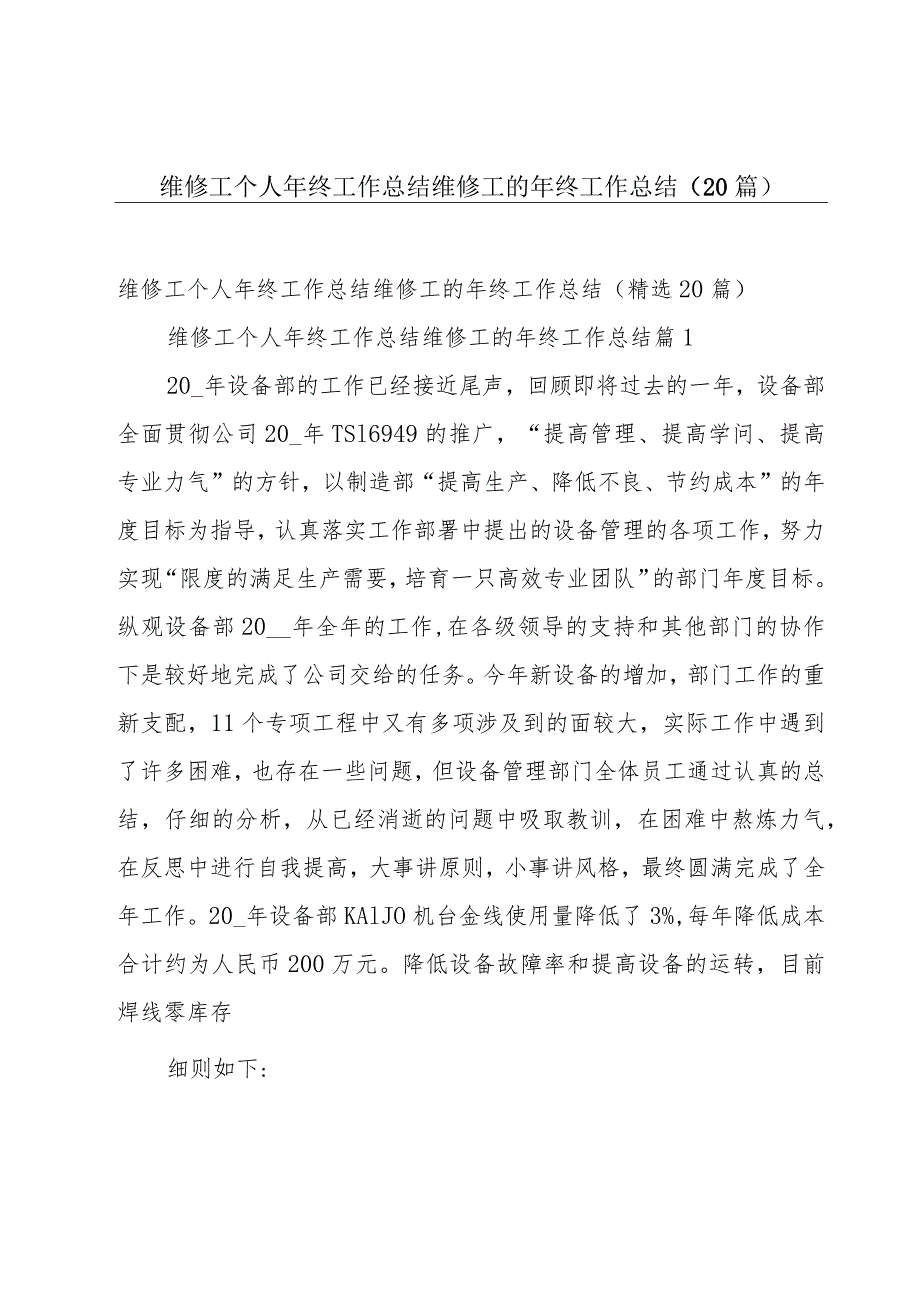 维修工个人年终工作总结维修工的年终工作总结（20篇）
维修工个人年终工作总结维修工的年终工作总结（精选20篇）
维修工个人年终工作总结维修工的年终工作总结篇1
20_年设备部的工作已经接近尾声，回顾即将过去的一年，设备部
全面贯彻公司20_年TSl6949的推广，“提高管理、提高学问、提高
专业力气”的方针，以制造部“提高生产、降低不良、节约成本”的年
度目标为指导，认真落实工作部署中提出的设备管理的各项工作，努力
实现“限度的满足生产需要，培育一只高效专业团队”的部门年度目标。
纵观设备部20__年全年的工作,在各级领导的支持和其他部门的协作
下是较好地完成了公司交给的任务。今年新设备的增加，部门工作的重
新支配，11个专项工程中又有多项涉及到的面较大，实际工作中遇到
了许多困难，也存在一些问题，但设备管理部门全体员工通过认真的总
结，仔细的分析，从已经消逝的问题中吸取教训，在困难中熬炼力气，
在反思中进行自我提高，大事讲原则，小事讲风格，最终圆满完成了全
年工作。20_年设备部KAlJO机台金线使用量降低了3%,每年降低成本
合计约为人民币200万元。降低设备故障率和提高设备的运转，目前
焊线零库存
细则如下: